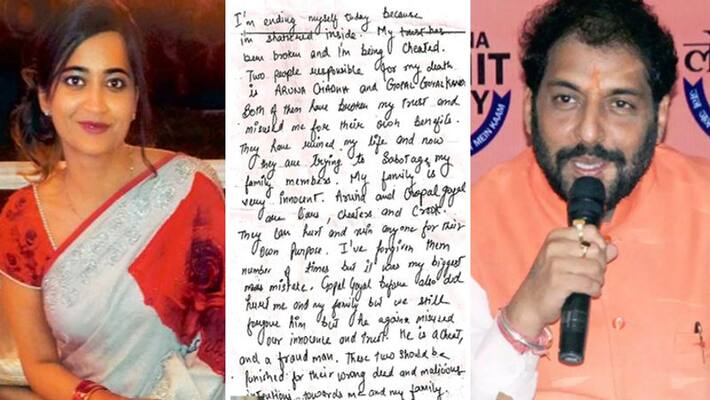 I'm ending myself today because
i'm shattered inside. My trust has
been broken and i'm being cheated.
Two people responsible for my death.
is ARUNA CHADHA and GOPAL GOYAL KANDA
Both of them have broken my trust and
misused me for their own benefits.
They have ruined my life and now
they are trying to Sabotage my
family members. My family is
very innocent. Aruna and Gopal goyal
are liars, cheaters and Crook.
They can hurt and ruin anyone for their
own Purpose. I've forgiven them
number of times but it was my biggest
mistake. Gopal Goyal before also did
hurt me and my family but we still
forgave him but he again misused
our innocence and trust. He is a Cheat,
and a fraud man. These two should be
punished for their wrong deed and malicious
intentions towards me and my family.
NA
IT
Y
MEIN KAAM
लो